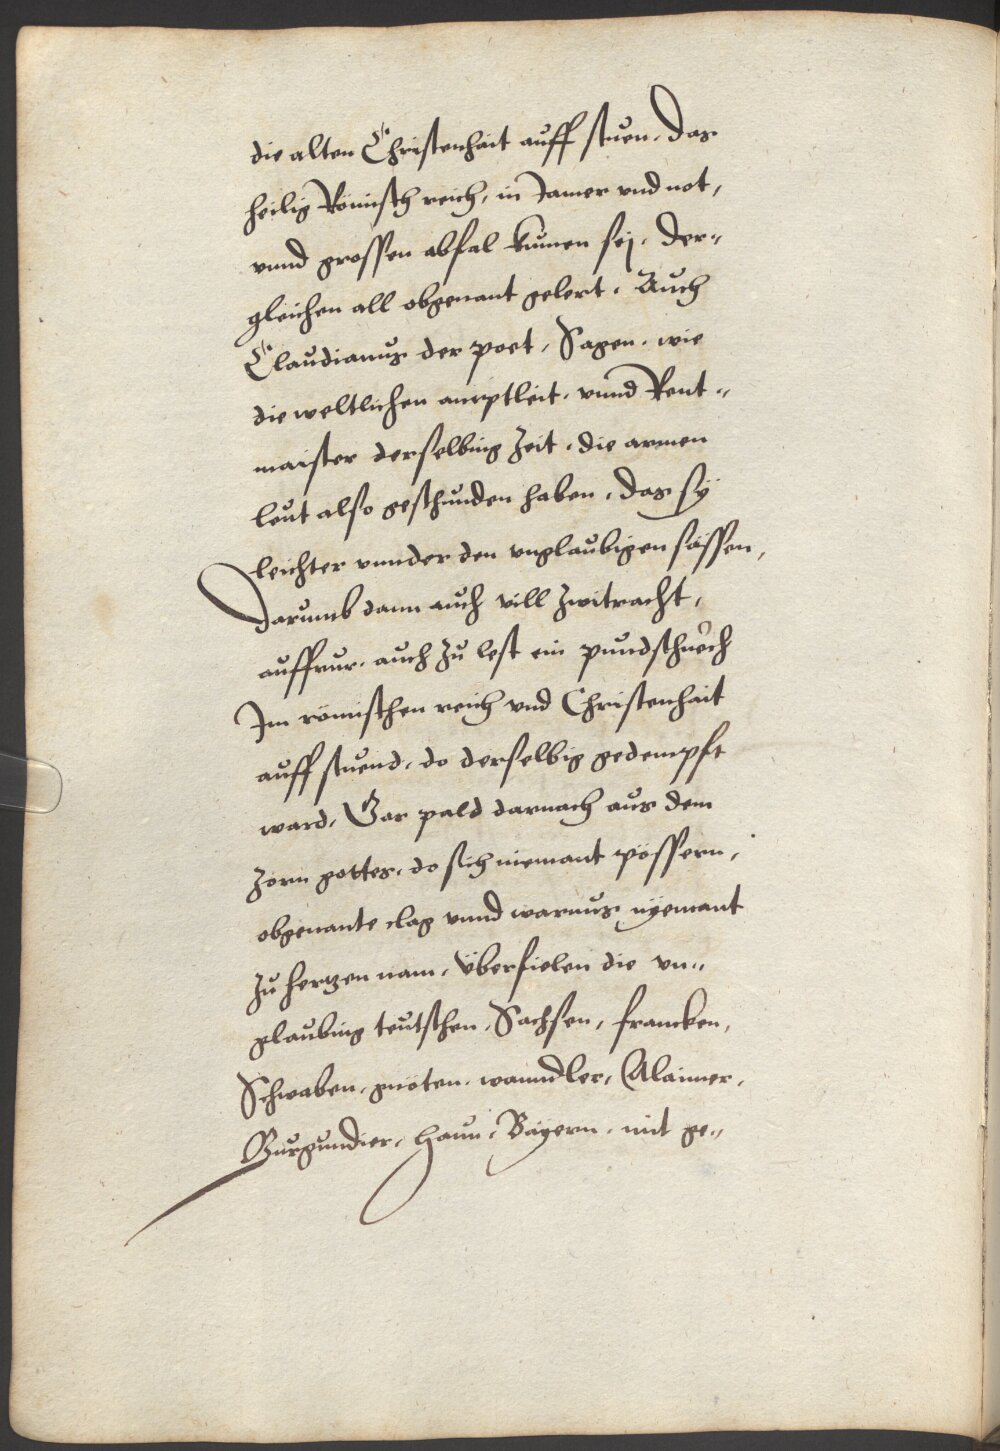 die alten Christenhait auff stuen. Das
heilig Römisch reich, in Jamer vnd not,
vnnd grossen abfal kumen sej. Der„
gleichen all obgenant gelert. Auch
Claudianus der poet, Sagen. wie
die weltlichen amptleit. vnnd Rent„
maister derselbing Zeit. die armen
leut also geschunden haben. das sÿ
leichter vnnder den vnglaubigen sässen,
Darumb dann auch vill zwitracht,
auffrur. auch Zu lest ein pundschuech
Im römischen reich vnd Christenhait
auff stuend. do derselbig gedempft
ward, Gar pald darnach aus dem
Zorn gottes. do sich niemant pössern,
obgenante clag vnnd warnus nÿemant
Zu hertzen nam. Überfielen die vn„
glaubing teutschen, Sachsen, francken,
Schwaben, gnöten. wanndler, Alainer,
Burgundier, Haun. Baÿern. mit ge„